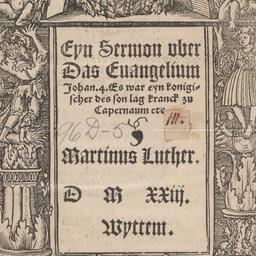 Eyn Sermon vber
Das Euangelium
Johan. 4. Es war eyn konigi-
scher des son lag kranck zu
Capernaum etc
96 D-5
III.
Martinus Luther.
D M XXiij.
Wyttem.